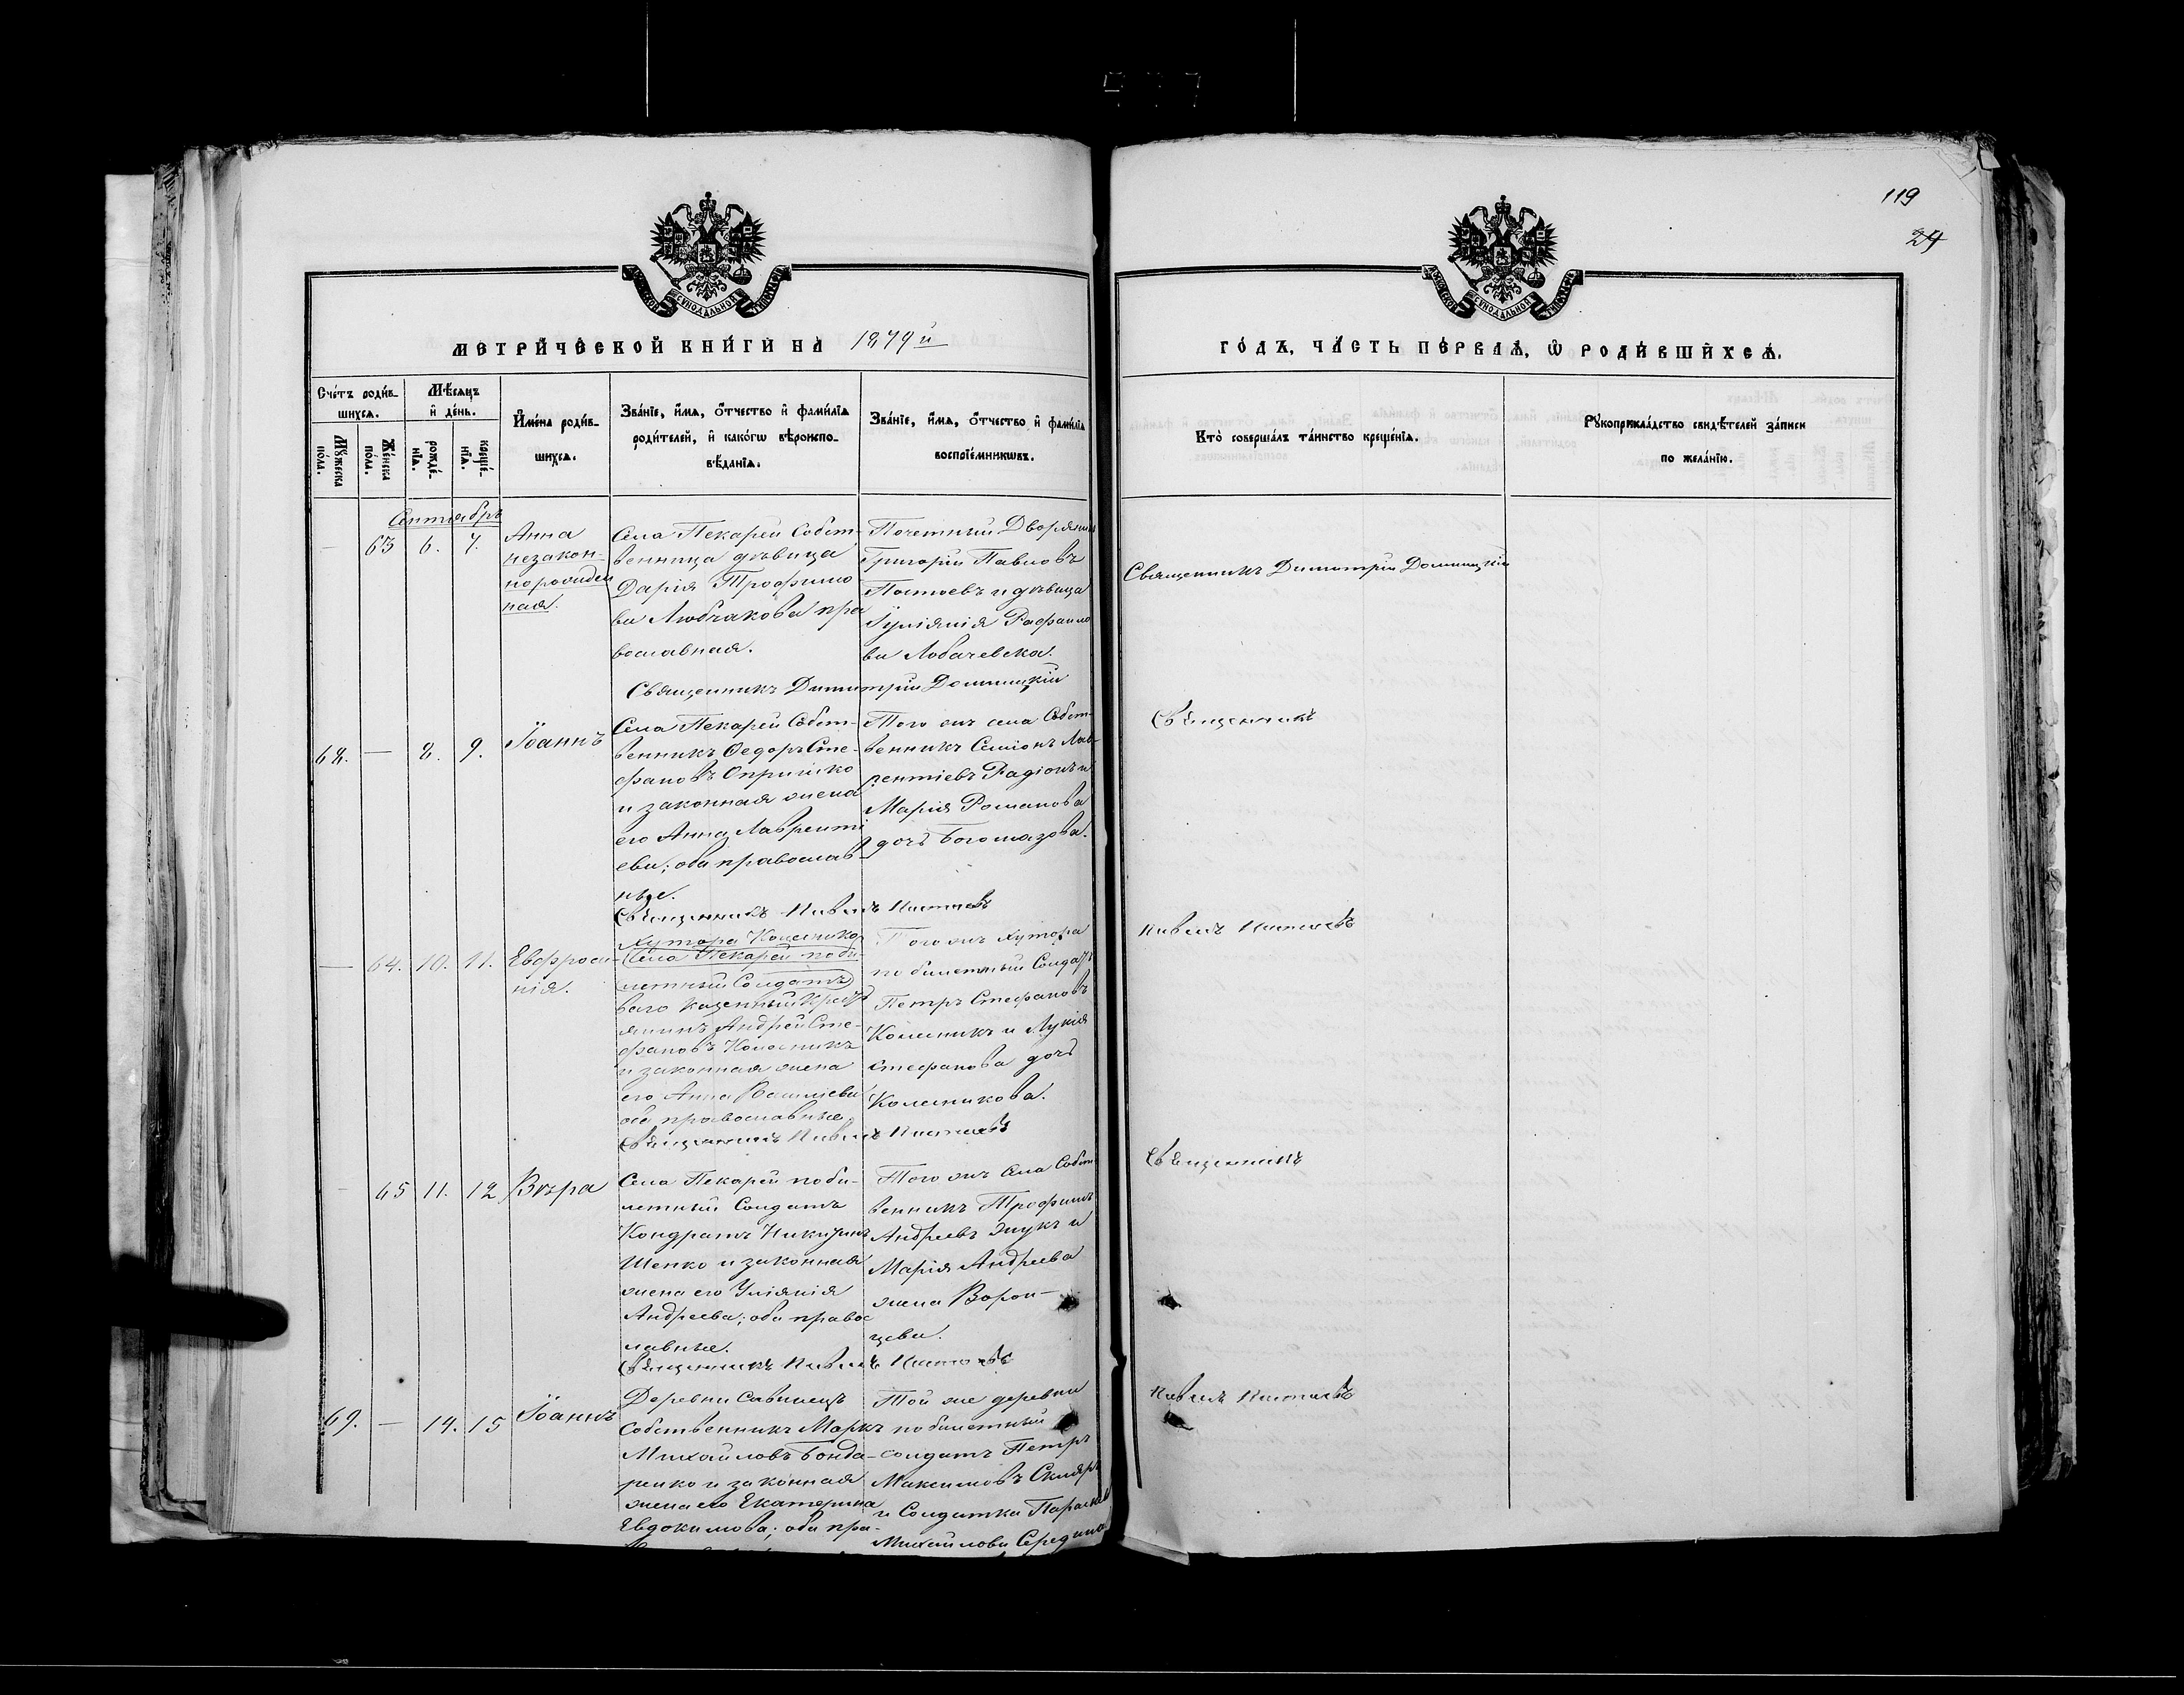 119
24
МЕТРИЧЕСКОЙ КНИГИ НА 1879 й
ГОДЪ, ЧАСТЬ ПЕРВАЯ, Ѡ РОДИВШИХСЯ.
Счетъ родив-
шихся.
Мѣсяцъ
и день.
Мужеска
пола.
Женска
пола.
рожде-
нія.
креще-
нія.
Имена родив-
шихся.
Званіе, имя, отчество и фамилія
родителей, и какогѡ вѣроиспо-
вѣданія.
Званіе, имя, отчество и фамилія
воспріемникѡвъ.
Кто совершалъ таинство крещенія.
Рукоприкладство свидѣтелей записи
по желанію.
Сентябрь
— 63 6. 7.
Анна
незакон-
норожден
ная.
Села Пекарей Собст-
венница дѣвица
Дарія Трофимо
ва Любчакова пра
вославная.
Почетный Дворянинъ
Григорій Павловъ
и дѣвица
Іуліянія
ва Лобачевска.
Священникъ Димитрій Домницкій
Священникъ Димитрій Домницкій
68. — 8. 9.
Іоаннъ
Села Пекарей Собст-
венникъ Ѳедоръ Сте-
фановъ Опришко
и законная жена
его Анна Лавренті
ева; оба православ
ные.
Того же села Собст-
венникъ Семіонъ Лав-
рентіевъ Радіонъ и
Марія Романова
дочь Богомазова.
Священникъ
Священникъ
— 64. 10. 11.
Евфроси-
нія.
Хутора Колеснико
Села Пекарей поби-
летный Солдатъ
ваго казенный Крест
янинъ Андрей Сте-
фановъ Колесникъ
и законная жена
его Анна Василіева
оба православные
Того же Хутора
побилетный Солдатъ
Петръ Стефановъ
Колесникъ и Лукія
Стефанова дочь
Колесникова.
Священникъ
— 65 11. 12
Вѣра
Села Пекарей поби-
летный Солдатъ
Кондратъ Никитинъ
Шепко и законная
жена его Уліянія
Андреева; оба правос
лавные.
Того же Села Собст
венникъ Трофимъ
Андреевъ Жукъ и
Марія Андреева
жена Ворон-
цева.
Священникъ
Священникъ
69. — 14. 15
Іоаннъ
Деревни Савинецъ
Собственникъ Маркъ
Михайловъ Бонда-
ренко и законная
жена его Екатерина
Евдокимова; оба пра-
Той же деревни
побилетный
солдатъ Петръ
Максимовъ Скляръ
и Солдатка Параскева
Михайлова Середина